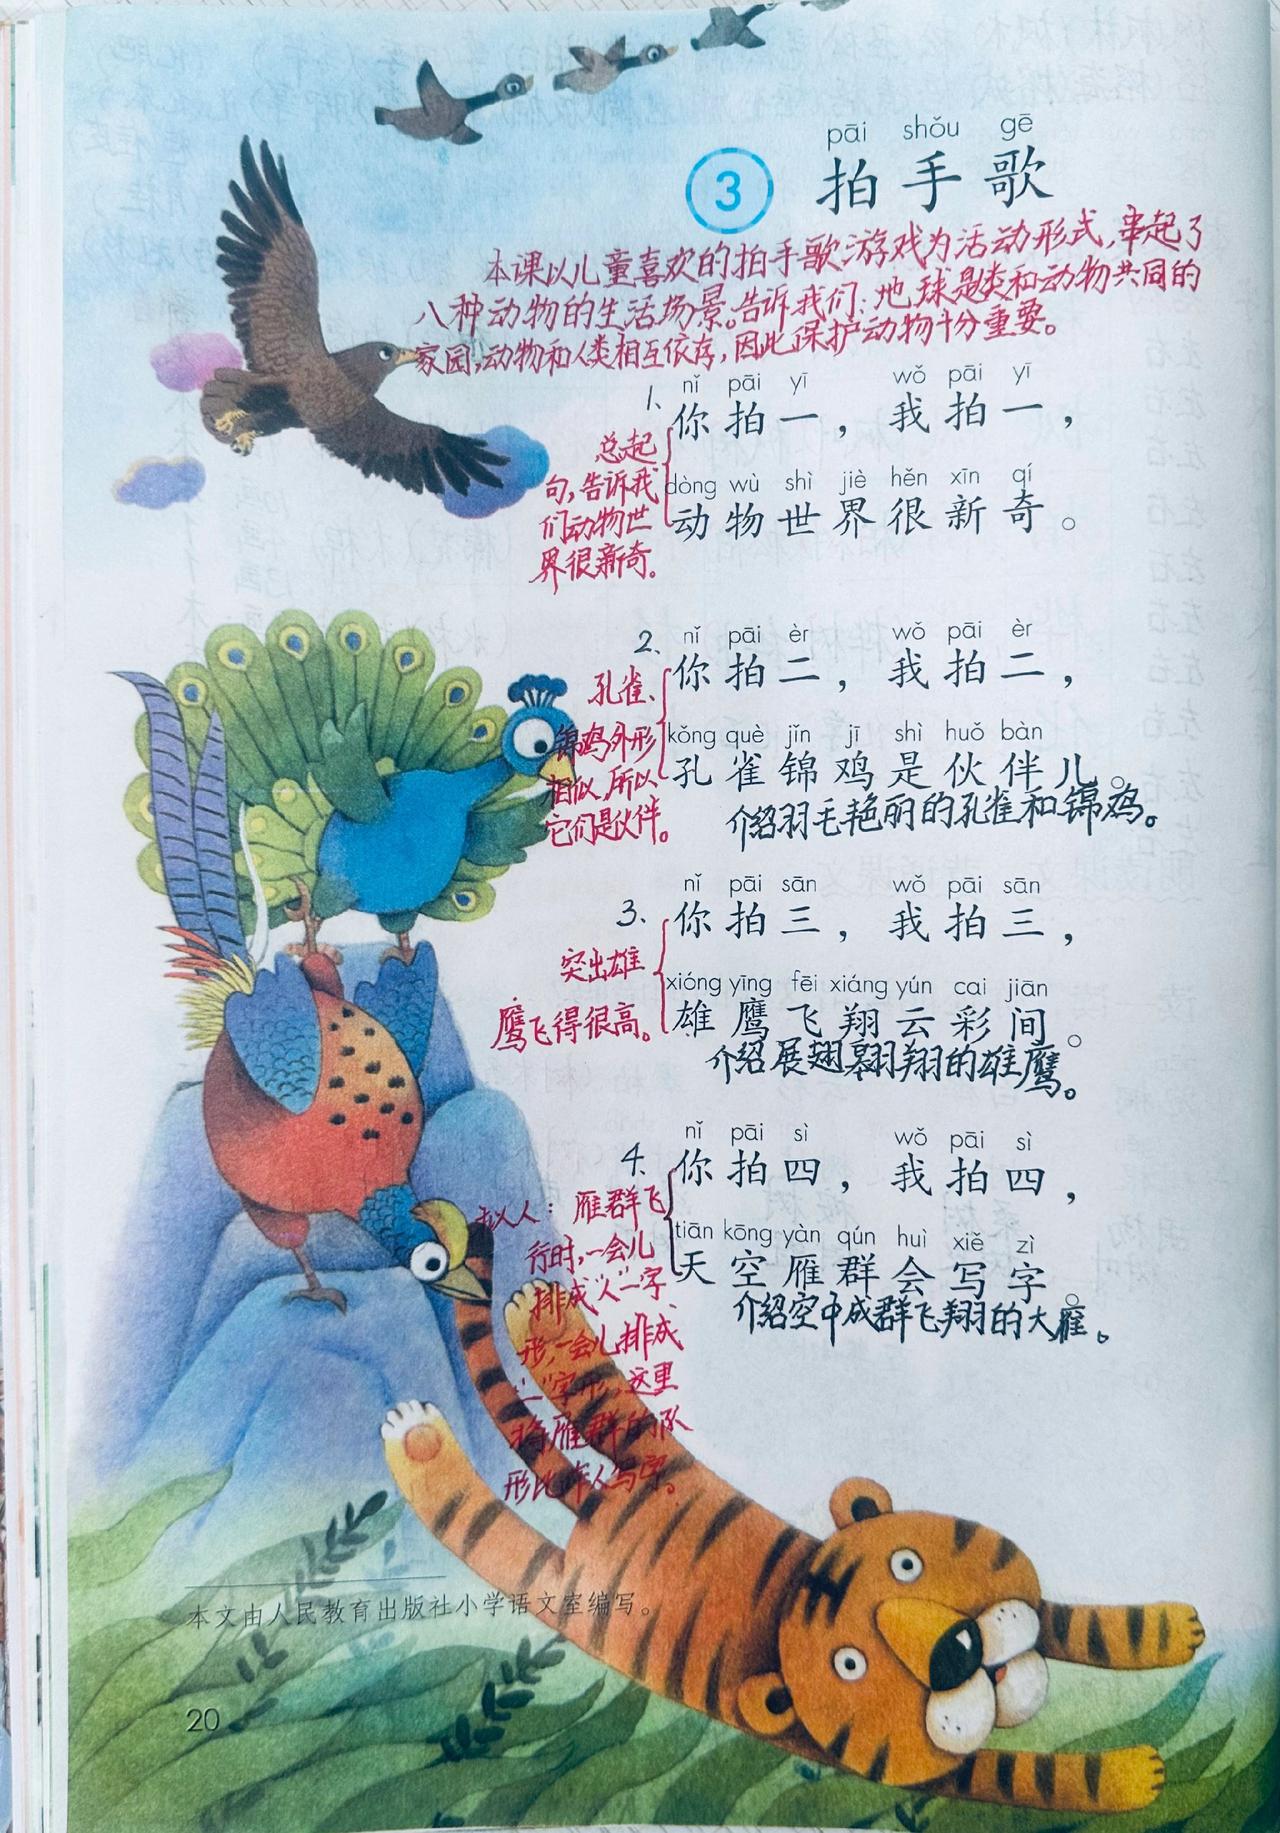 pāi shǒu gē
3 拍手歌
本课以儿童喜欢的拍手歌游戏为活动形式,串起了
八种动物的生活场景。告诉我们:地球是类和动物共同的
家园,动物和人类相互依存,因此保护动物十分重要。
nǐ pāi yī wǒ pāi yī
1、你拍一，我拍一，
总起
句,告诉我
们动物世
界很新奇。
dòng wù shì jiè hěn xīn qí
动物世界很新奇。
nǐ pāi èr wǒ pāi èr
2、你拍二，我拍二，
孔雀、
锦鸡外形
相似,所以
它们是伙伴。
kǒng què jǐn jī shì huǒ bàn
孔雀锦鸡是伙伴儿。
介绍羽毛艳丽的孔雀和锦鸡。
nǐ pāi sān wǒ pāi sān
3、你拍三，我拍三，
突出雄
鹰飞得很高。
xióng yīng fēi xiáng yún cai jiān
雄鹰飞翔云彩间。
介绍展翅翱翔的雄鹰。
nǐ pāi sì wǒ pāi sì
4、你拍四，我拍四，
拟人：雁群飞
行时,一会儿
排成"人"字
形,一会儿排成
"一"字形,这里
将雁群的队
形比作人写字。
tiān kōng yàn qún huì xiě zì
天空雁群会写字。
介绍空中成群飞翔的大雁。
本文由人民教育出版社小学语文室编写。
20